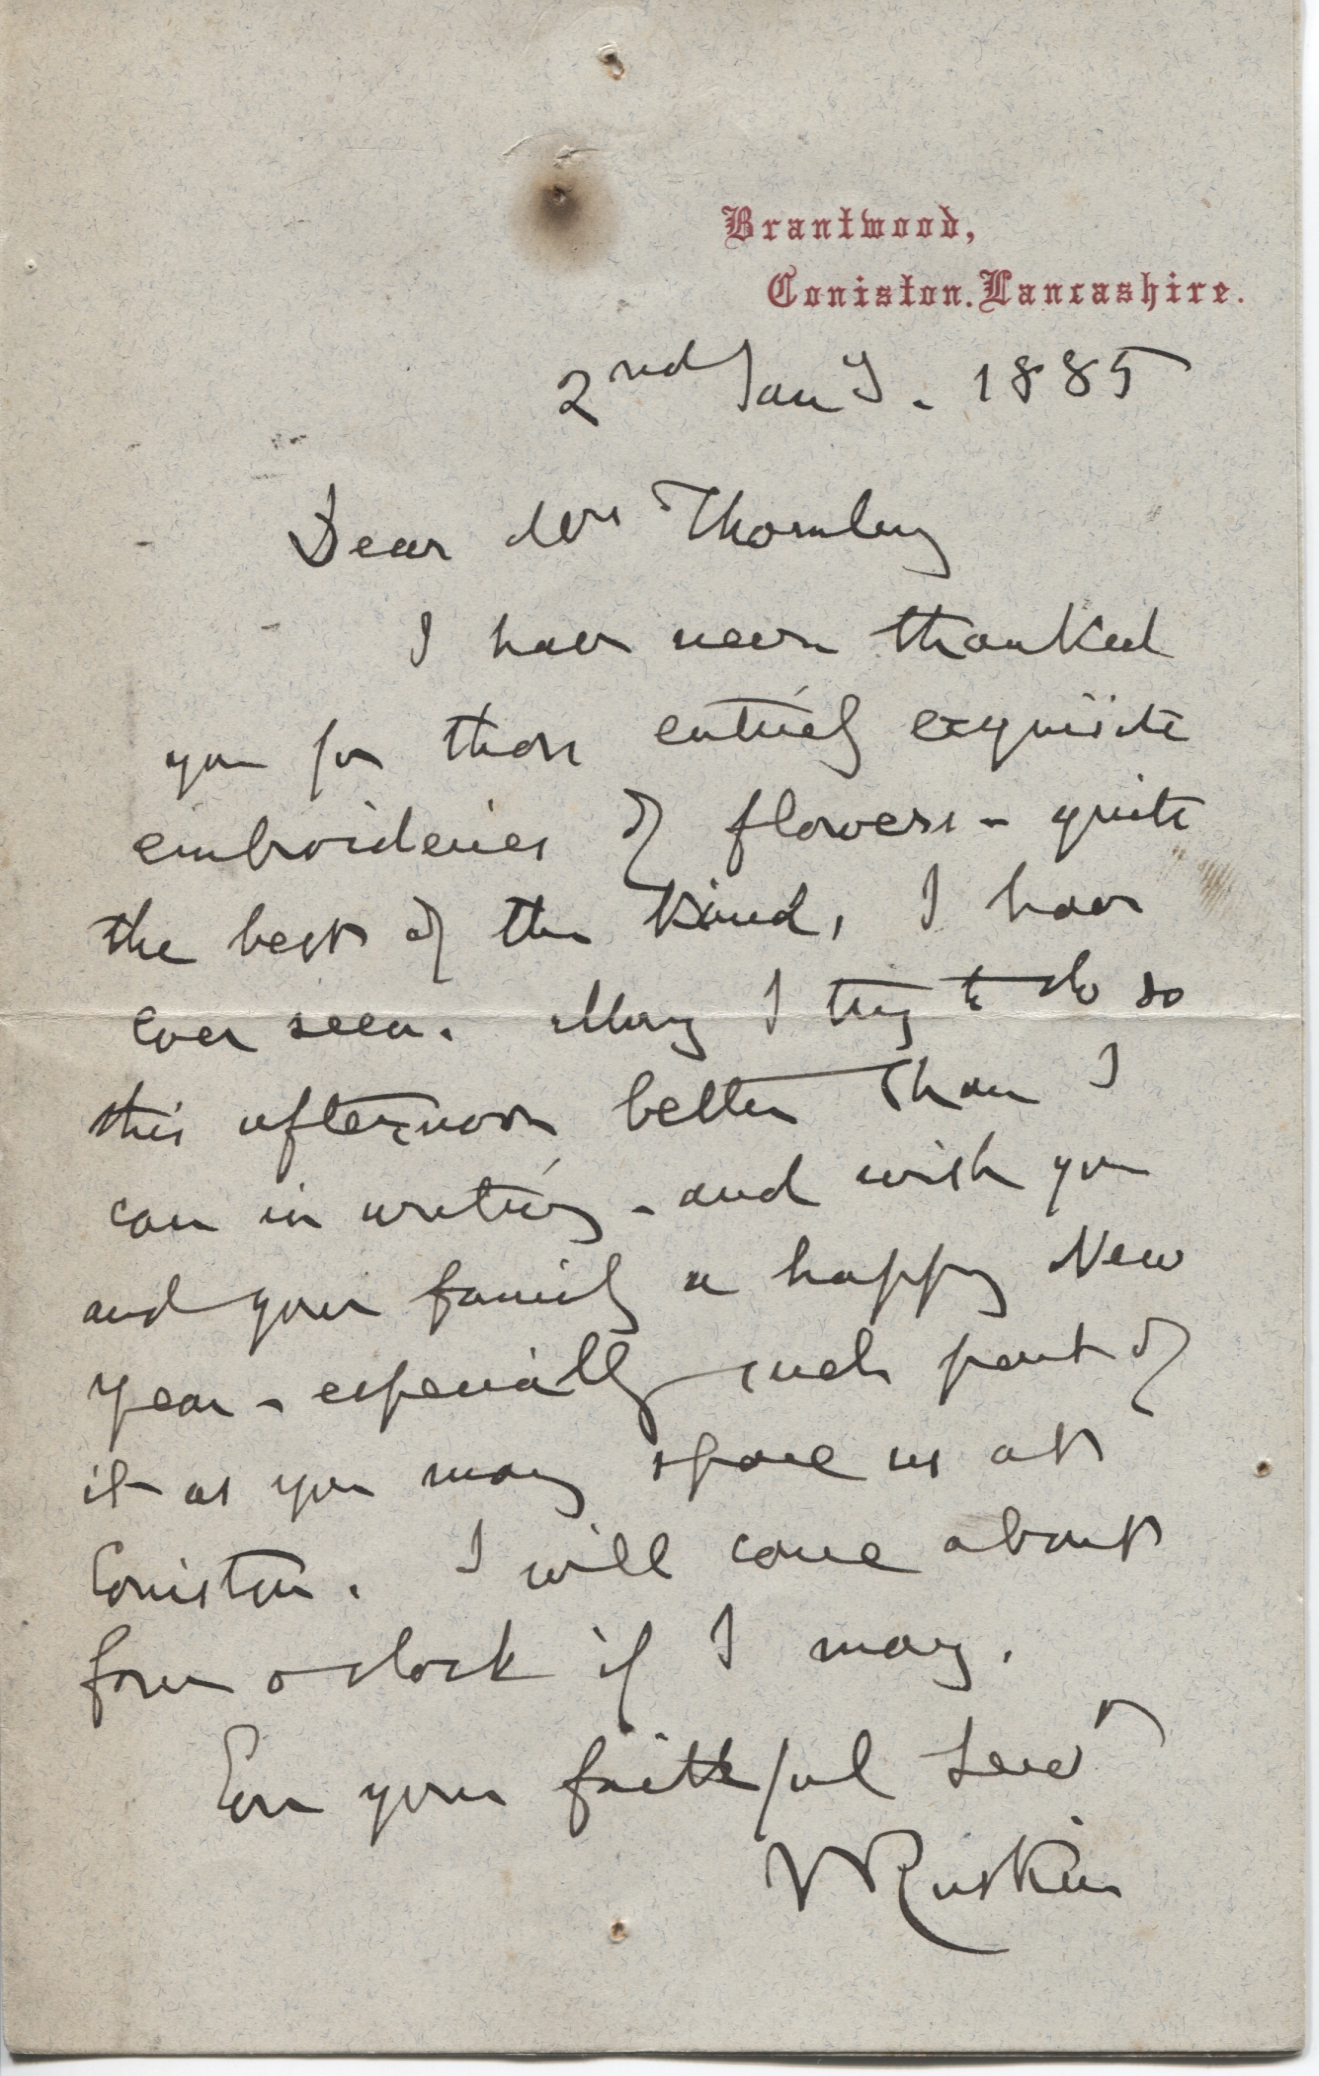 Brantwood,
Coniston. Lancashire.
2nd Jany. 1885
Dear Mrs Thornley
I have never thanked
you for those entirely exquisite
embroideries of flowers - quite
the best of the kind, I have
ever seen. May I try to do so
this afternoon better than I
can in writing - and wish you
and your family a happy New
Year - especially such part of
it as you may spare us at
Coniston. I will come about
four oclock if I may.
Ever your faithful Servt
J Ruskin